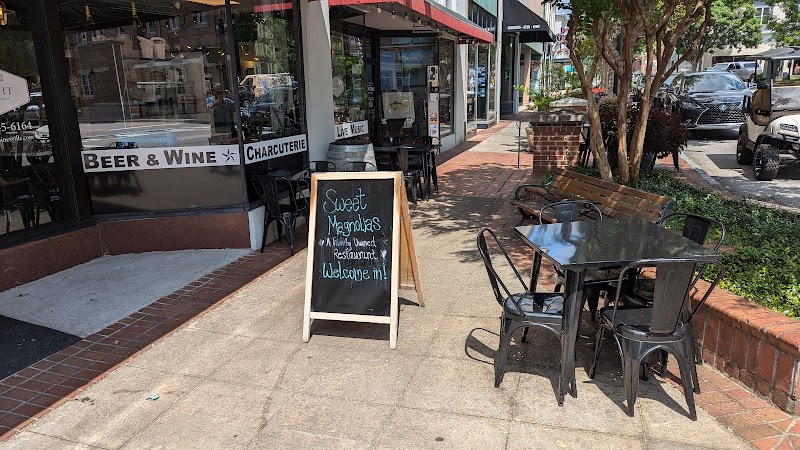 5-6164
BEER & WINE ★ CHARCUTERIE
LIVE MUSIC
Sweet
Magnolias
A Family Owned
Restaurant
Welcome in!